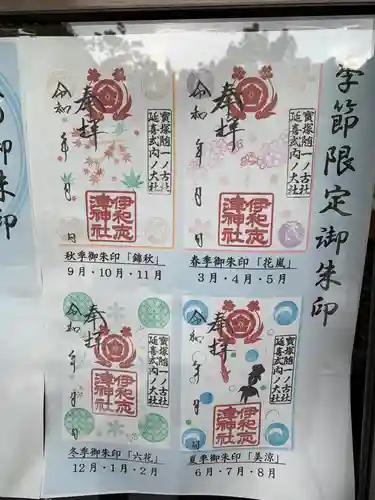 季節限定御朱印
奉拝
令和 年 月
寶塚随一ノ古社
延喜式内ノ大社
伊和志津神社
春季御朱印「花嵐」
3月・4月・5月
奉拝
令和 年 月
寶塚随一ノ古社
延喜式内ノ大社
伊和志津神社
秋季御朱印「錦秋」
9月・10月・11月
奉拝
令和 年 月
寶塚随一ノ古社
延喜式内ノ大社
伊和志津神社
夏季御朱印「美涼」
6月・7月・8月
奉拝
令和 年 月
寶塚随一ノ古社
延喜式内ノ大社
伊和志津神社
冬季御朱印「六花」
12月・1月・2月
御朱印